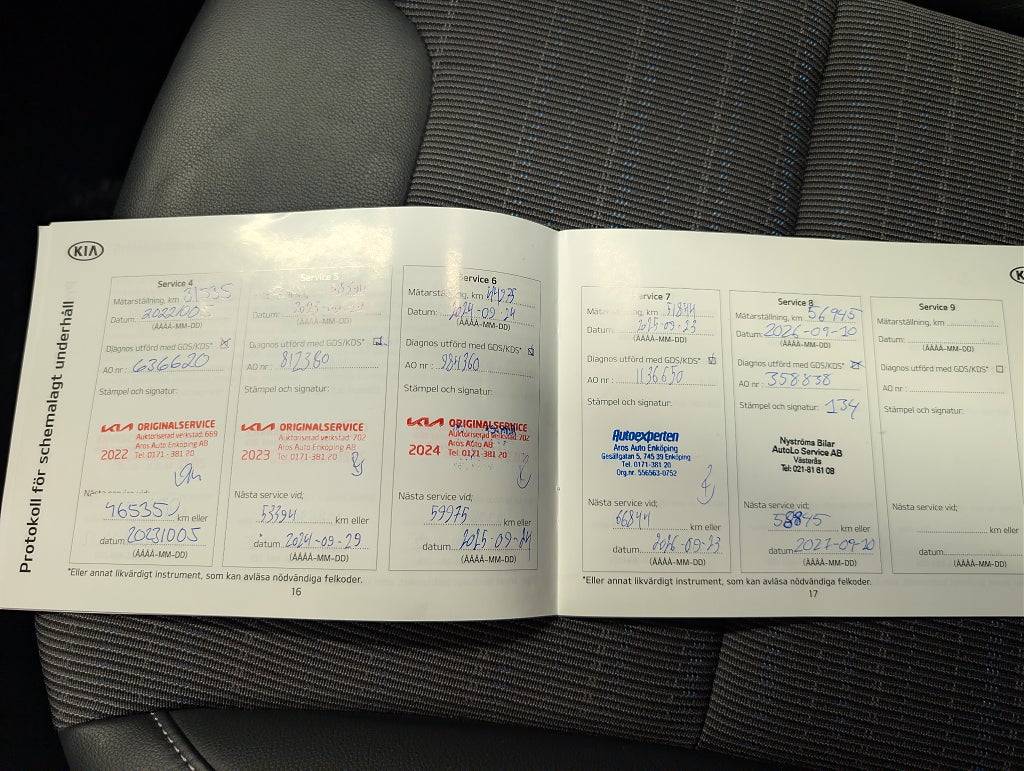 KIA
Protokoll för schemalagt underhåll
Service 4
Mätarställning, km 31535
Datum: 2022100
(ÅÅÅÅ-MM-DD)
Diagnos utförd med GDS/KDS*
AO nr: 636620
Stämpel och signatur:
KIA ORIGINALSERVICE
Auktoriserad verkstad: 669
Aros Auto Enköping AB
2022 Tel. 0171-381 20
Nästa service vid;
465350 km eller
datum 20231005
(ÅÅÅÅ-MM-DD)
Service 5
km
Datum: 2023-09-29
(ÅÅÅÅ-MM-DD)
Diagnos utförd med GDS/KDS*
AO nr: 812360
Stämpel och signatur:
KIA ORIGINALSERVICE
Auktoriserad verkstad: 702
Aros Auto Enköping AB
2023 Tel. 0171-381 20
Nästa service vid;
53394 km eller
datum 2024-09-29
(ÅÅÅÅ-MM-DD)
Service 6
Mätarställning, km 44975
Datum: 2024-09-24
(ÅÅÅÅ-MM-DD)
Diagnos utförd med GDS/KDS*
AO nr: 984360
Stämpel och signatur:
KIA ORIGINALSERVICE
Auktoriserad verkstad 702
Aros Auto AB
2024 Tel. 0171-381 20
Nästa service vid;
59975 km eller
datum 2025-09-24
(ÅÅÅÅ-MM-DD)
*Eller annat likvärdigt instrument, som kan avläsa nödvändiga felkoder.
16
Service 7
Mätarställning, km 51844
Datum: 2025-09-23
(ÅÅÅÅ-MM-DD)
Diagnos utförd med GDS/KDS*
AO nr: 1136650
Stämpel och signatur:
Autoexperten
Aros Auto Enköping
Gesällgatan 5, 745 39 Enköping
Tel. 0171-381 20
Org.nr. 556563-0752
Nästa service vid;
66844 km eller
datum 2026-09-23
(ÅÅÅÅ-MM-DD)
Service 8
Mätarställning, km 56945
Datum: 2026-09-10
(ÅÅÅÅ-MM-DD)
Diagnos utförd med GDS/KDS*
AO nr: 358838
Stämpel och signatur: 134
Nyströms Bilar
AutoLo Service AB
Västerås
Tel: 021-81 61 08
Nästa service vid;
58845 km eller
datum 2027-09-10
(ÅÅÅÅ-MM-DD)
Service 9
Mätarställning, km
Datum:
(ÅÅÅÅ-MM-DD)
Diagnos utförd med GDS/KDS*
AO nr:
Stämpel och signatur:
Nästa service vid;
km eller
datum
(ÅÅÅÅ-MM-DD)
*Eller annat likvärdigt instrument, som kan avläsa nödvändiga felkoder.
17